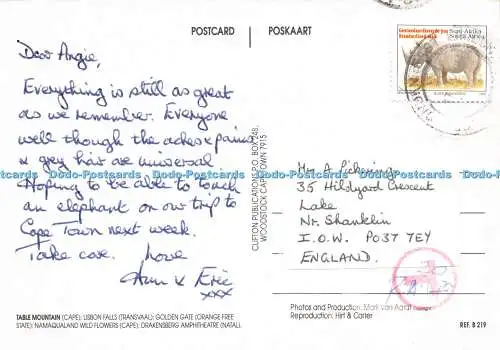 POSTCARD POSKAART
Dear Angie,
Everything is still as great
as we remember. Everyone
well though the aches & pains
& grey hair are universal.
Hoping to be able to touch
an elephant on our trip to
Cape Town next week.
Take care. Love
Ann & Eric
xxx
TABLE MOUNTAIN (CAPE); LISBON FALLS (TRANSVAAL); GOLDEN GATE (ORANGE-FREE
STATE); NAMAQUALAND WILD FLOWERS (CAPE); DRAKENSBERG AMPHITHEATRE (NATAL).
CLIFTON PUBLICATIONS P.O. BOX 248,
WOODSTOCK CAPE TOWN 7915
Suid-Afrika
South Africa
Mrs A Pickering
35 Hildyard Crescent
Lake
Nr. Shanklin
I.O.W. PO37 7EY
ENGLAND.
Photos and Production: Mark van Aardt
Reproduction: Hirt & Carter
REF. B 219
Dodo-Postcards Dodo-Postcards Dodo-Postcards Dodo-Postcards